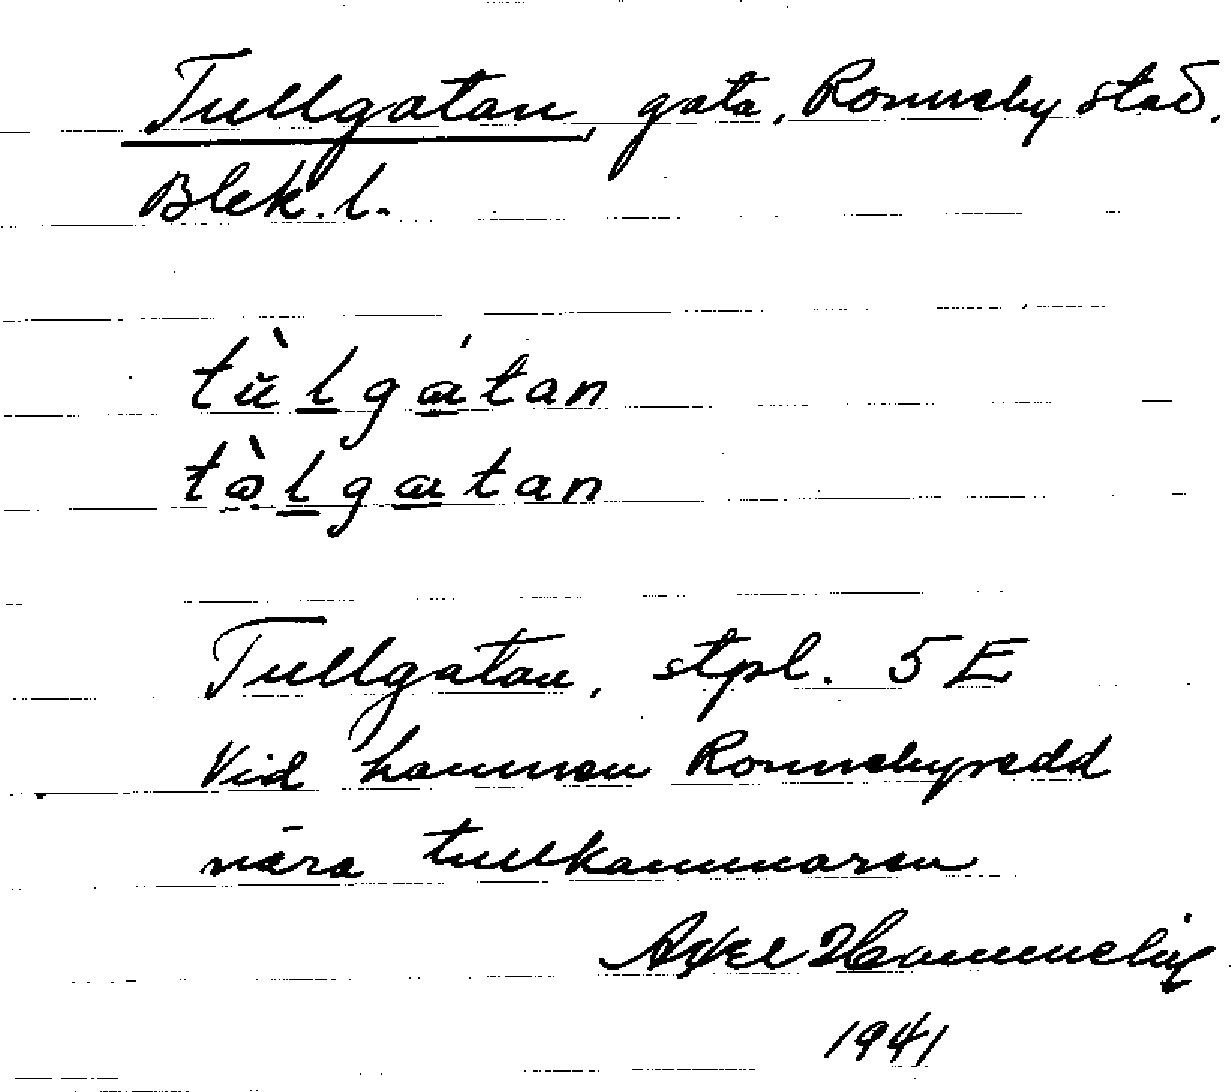 Tullgatan, gata, Ronneby stad.
Blek. l.
tùlgátan
tòlgatan
Tullgatan, stpl. 5 E
Vid hamnen Ronnebyredd
nära tullkammaren
Axel
1941